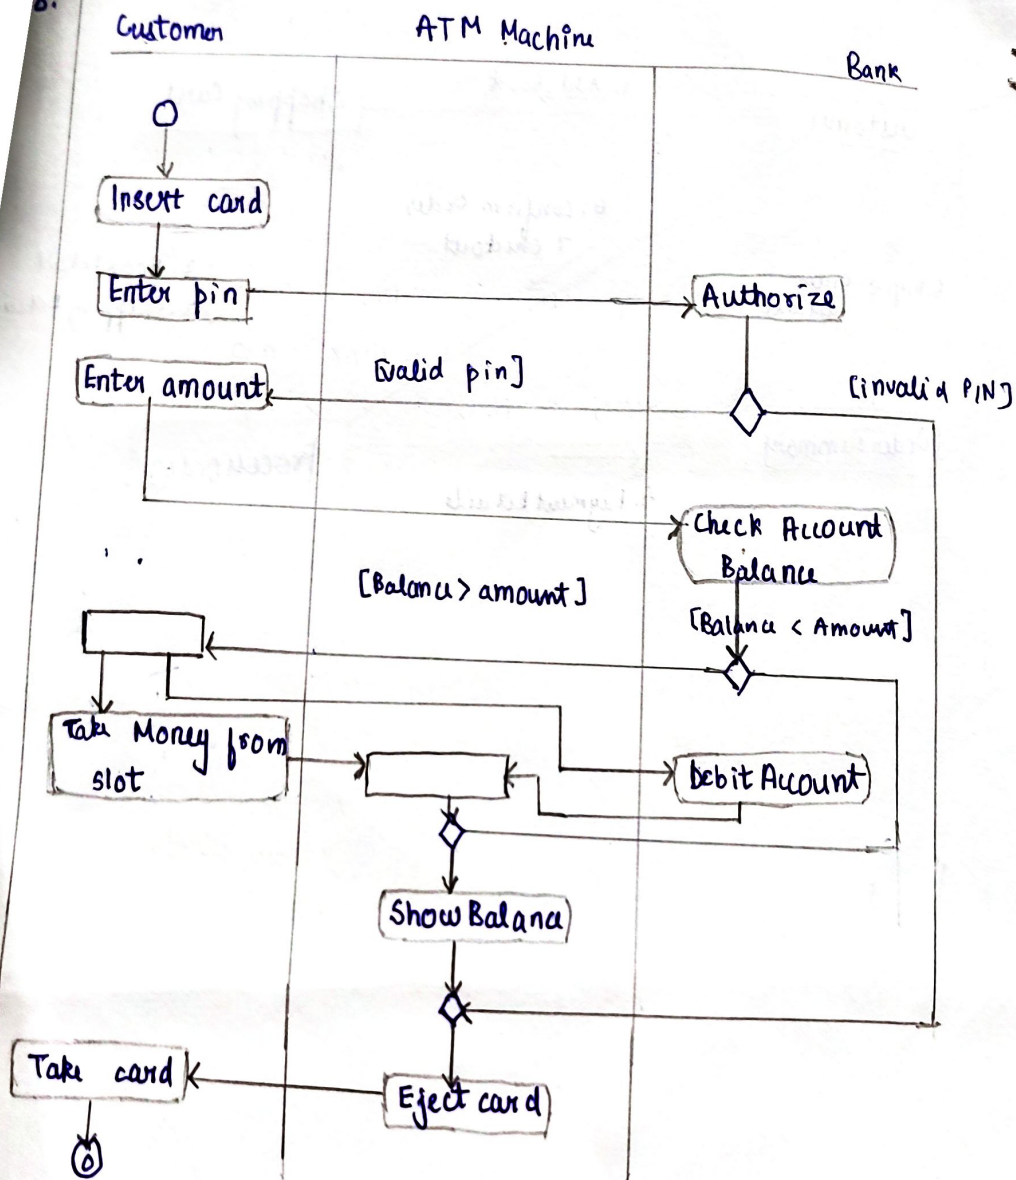 Customer
ATM Machine
Bank
Insert card
Enter pin
Authorize
Enter amount
[valid pin]
[invalid PIN]
Check Account
Balance
[Balance > amount]
[Balance < Amount]
Take Money from
slot
Debit Account
Show Balance
Take card
Eject card